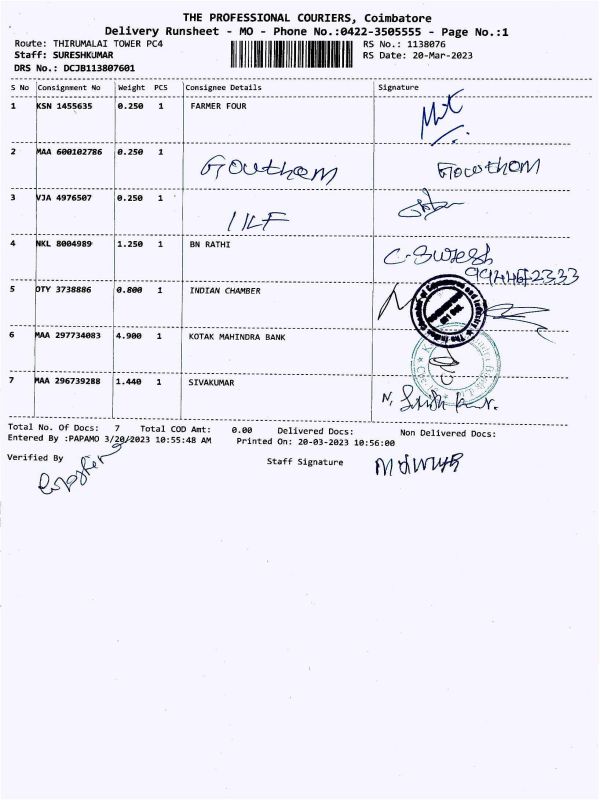 THE PROFESSIONAL COURIERS, Coimbatore
Delivery Runsheet - MO - Phone No.:0422-3505555 - Page No.:1
Route: THIRUMALAI TOWER PC4 RS No.: 1138076
Staff: SURESHKUMAR RS Date: 20-Mar-2023
DRS No.: DCJB113807601
S No Consignment No Weight PCS Consignee Details Signature
1 KSN 1455635 0.250 1 FARMER FOUR
2 MAA 600102786 0.250 1 Goutham Gowthom
3 VJA 4976507 0.250 1 IILF
4 NKL 8004989 1.250 1 BN RATHI C. Suresh
9944672333
5 OTY 3738886 0.800 1 INDIAN CHAMBER
6 MAA 297734083 4.900 1 KOTAK MAHINDRA BANK
7 MAA 296739288 1.440 1 SIVAKUMAR
Total No. Of Docs: 7 Total COD Amt: 0.00 Delivered Docs: Non Delivered Docs:
Entered By :PAPAMO 3/20/2023 10:55:48 AM Printed On: 20-03-2023 10:56:00
Verified By Staff Signature